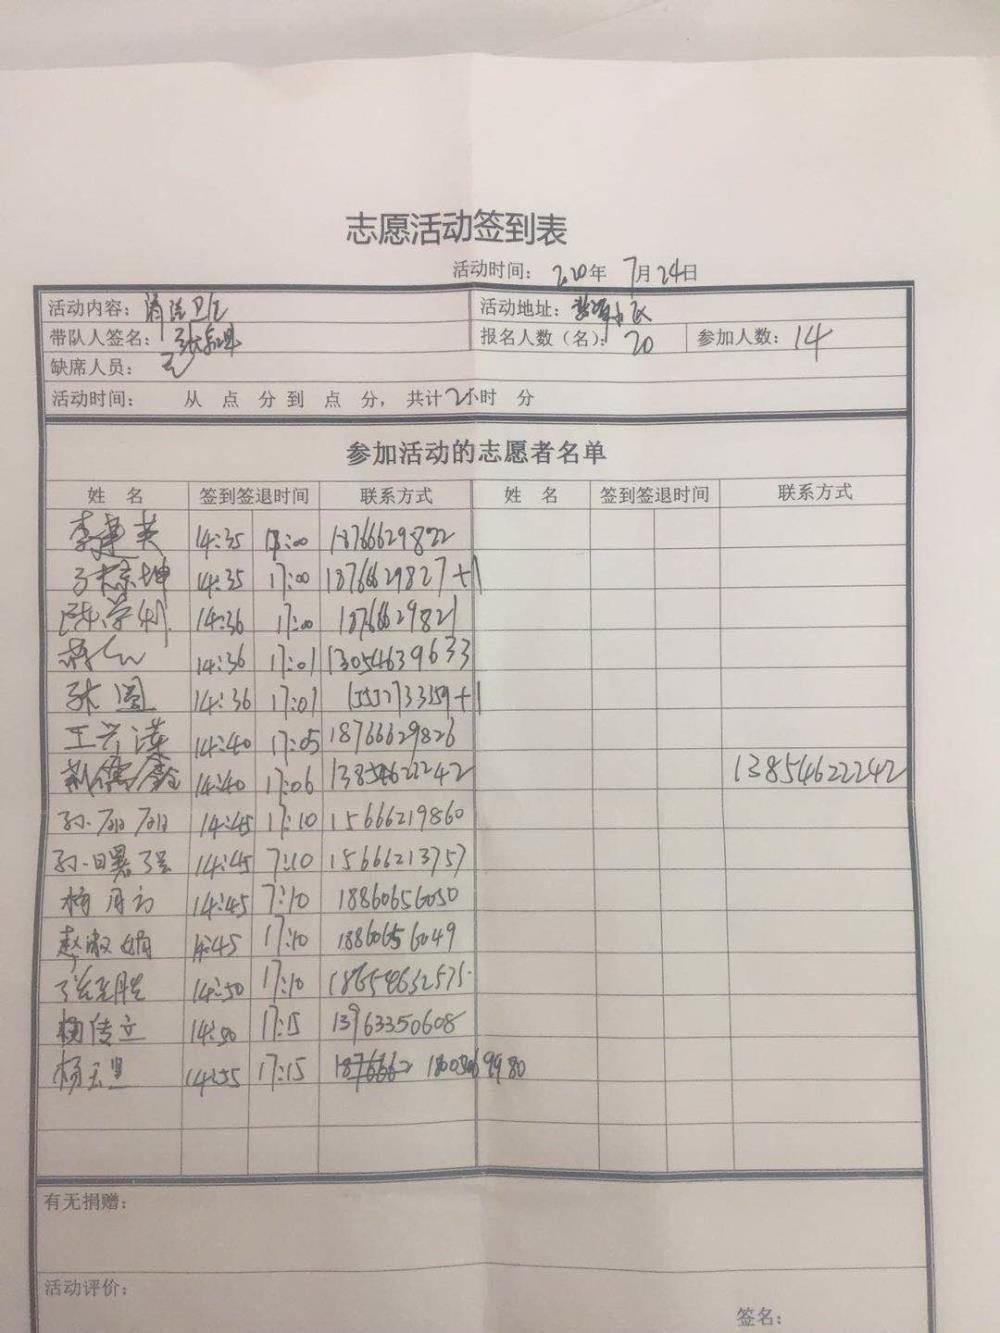 志愿活动签到表
活动时间： 2020年 7月24日
活动内容：清洁卫生 活动地址：
带队人签名： 报名人数（名）：20 参加人数：14
缺席人员：无
活动时间： 从 点 分到 点 分，共计2小时 分
参加活动的志愿者名单
姓 名 签到签退时间 联系方式 姓 名 签到签退时间 联系方式
李建英 14:35 17:00 18766629822
张景坤 14:35 17:00 18766629827+1
陈学州 14:36 17:00 18766629821
14:36 17:01 13054639633
张圆 14:36 17:01 1552733359+1
王兴汉 14:40 17:05 18766629826
14:40 17:06 13854622242 13854622242
孙丽丽 14:45 17:10 15666219860
孙曙强 14:45 7:10 15666213757
杨月力 14:45 7:10 18860656050
赵淑娟 14:45 17:10 18860656049
张先胜 14:50 17:10 18654632575
杨传立 14:50 17:15 13963350608
杨玉星 14:55 17:15
有无捐赠：
活动评价：
签名：